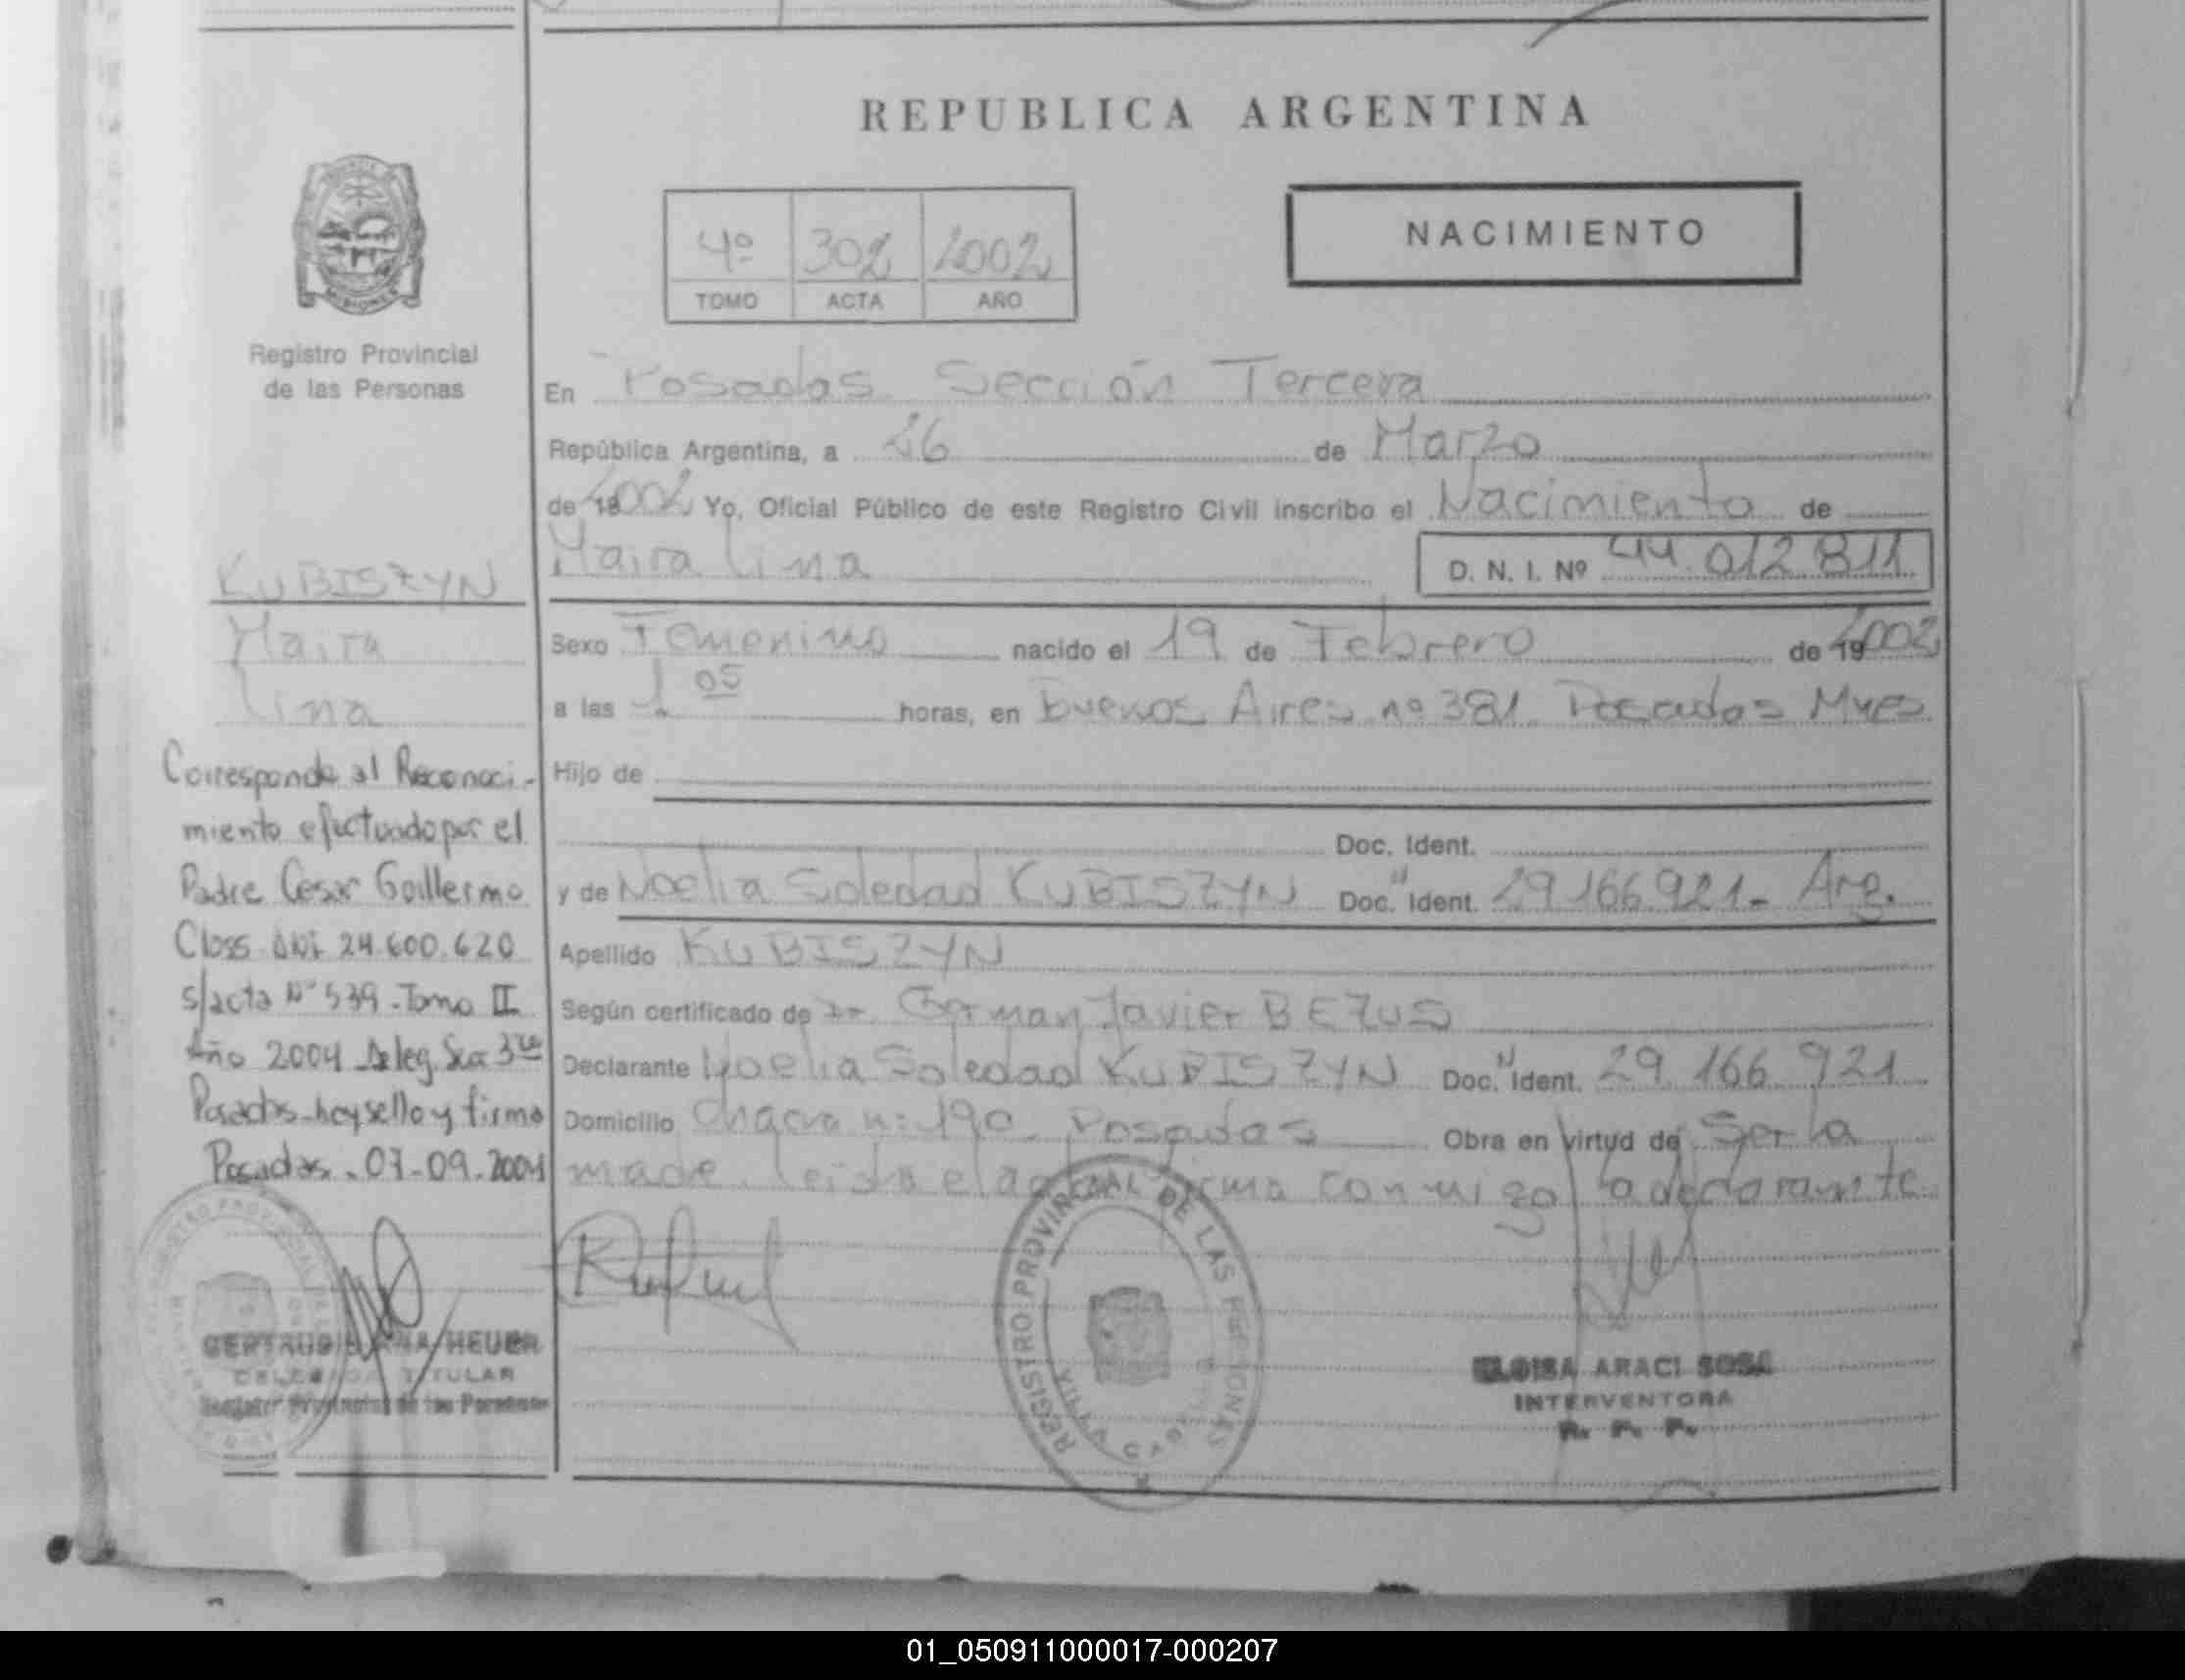 REPUBLICA ARGENTINA
NACIMIENTO
4º 302 2002
TOMO ACTA AÑO
MISIONES
Registro Provincial
de las Personas
En Posadas Sección Tercera
República Argentina, a 26 de Marzo
de 2002 Yo, Oficial Público de este Registro Civil inscribo el Nacimiento de
Maira Lina D. N. I. Nº 44.012811
Sexo Femenino nacido el 19 de Febrero de 2002
a las 1 05 horas, en Buenos Aires nº 381 Posadas Mnes
Hijo de
Doc. Ident.
y de Noelia Soledad KUBISZYN Doc. Ident. 29.166.921- Arg.
Apellido KUBISZYN
Según certificado de Dr. German Javier BEZUS
Declarante Noelia Soledad KUBISZYN Doc. Ident. 29.166.921
Domicilio Chacra n: 190 Posadas Obra en virtud de Ser la
madre. Leida el acta firma conmigo la declarante
KUBISZYN
Maira
Lina
Corresponde al Reconoci-
miento efectuado por el
Padre Cesar Guillermo
Closs DNI 24.600.620
s/acta Nº 539 - Tomo II
Año 2004 Deleg. Scc 3ra
Posadas - hoy sello y firmo
Posadas - 07-09-2004
GERTRUDIS ANA HEUER
DELEGADA TITULAR
Registro Provincial de las Personas
REGISTRO PROVINCIAL DE LAS PERSONAS
VILLA CABELLO
ELOISA ARACI SOSA
INTERVENTORA
R. P. P.
01_050911000017-000207